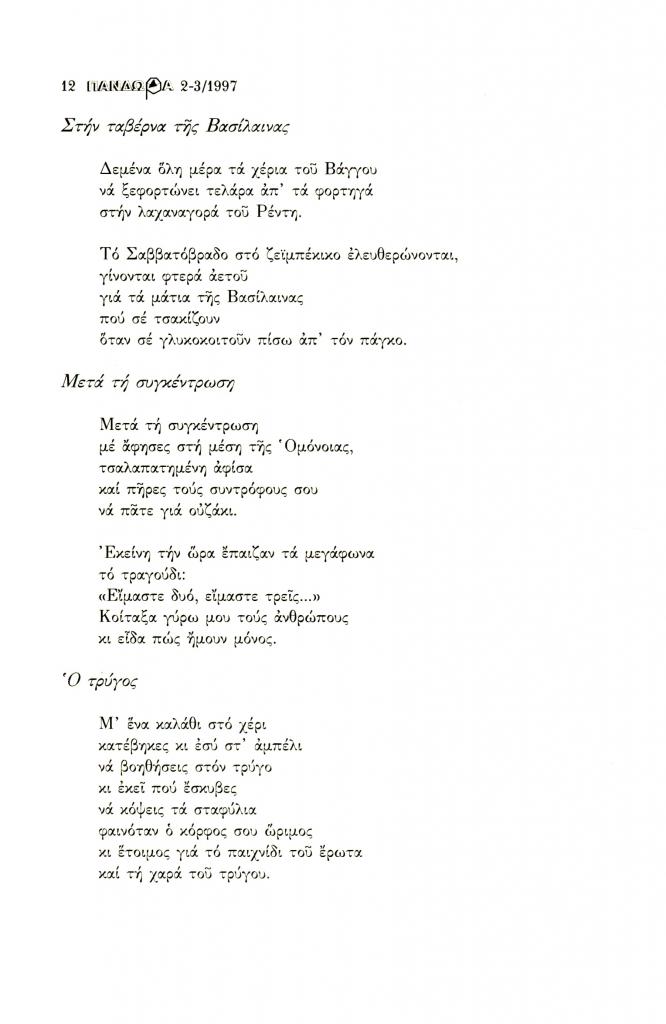 12 ΠΑΝΔΩΡΑ 2-3/1997
Στήν ταβέρνα τῆς Βασίλαινας
Δεμένα ὅλη μέρα τά χέρια τοῦ Βάγγου
νά ξεφορτώνει τελάρα ἀπ' τά φορτηγά
στήν λαχαναγορά τοῦ Ρέντη.
Τό Σαββατόβραδο στό ζεϊμπέκικο ἐλευθερώνονται,
γίνονται φτερά ἀετοῦ
γιά τά μάτια τῆς Βασίλαινας
πού σέ τσακίζουν
ὅταν σέ γλυκοκοιτοῦν πίσω ἀπ' τόν πάγκο.
Μετά τή συγκέντρωση
Μετά τή συγκέντρωση
μέ ἄφησες στή μέση τῆς Ὁμόνοιας,
τσαλαπατημένη ἀφίσα
καί πῆρες τούς συντρόφους σου
νά πᾶτε γιά οὐζάκι.
Ἐκείνη τήν ὥρα ἔπαιζαν τά μεγάφωνα
τό τραγούδι:
«Εἴμαστε δυό, εἴμαστε τρεῖς...»
Κοίταξα γύρω μου τούς ἀνθρώπους
κι εἶδα πώς ἤμουν μόνος.
Ὁ τρύγος
Μ' ἕνα καλάθι στό χέρι
κατέβηκες κι ἐσύ στ' ἀμπέλι
νά βοηθήσεις στόν τρύγο
κι ἐκεῖ πού ἔσκυβες
νά κόψεις τά σταφύλια
φαινόταν ὁ κόρφος σου ὥριμος
κι ἕτοιμος γιά τό παιχνίδι τοῦ ἔρωτα
καί τή χαρά τοῦ τρύγου.